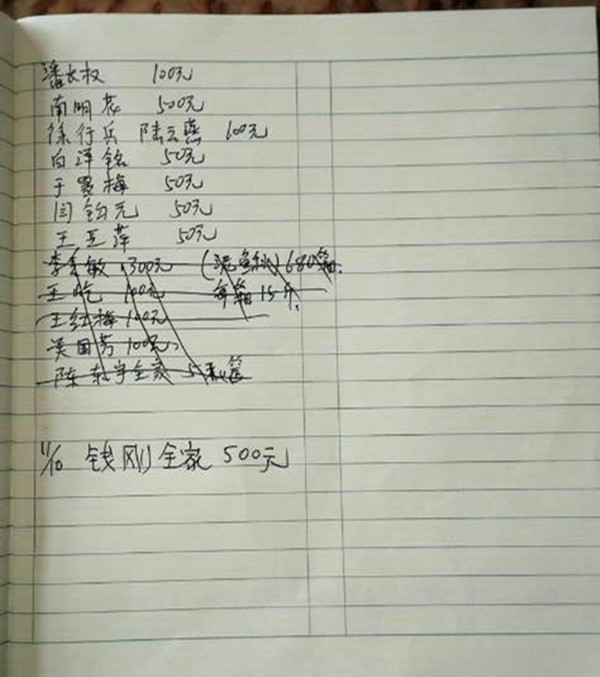 潘长权 100元
南明花 500元
徐行兵 陆云燕 100元
白泽铭 50元
于翠梅 50元
闫钧元 50元
王玉萍 50元
李敏 300元 (泥鱼秋) 680箱.
王吃 100元 每箱15斤.
王红梅 100元
吴国芳 100元
陈东宇全家 5
11/10 钱刚全家 500元